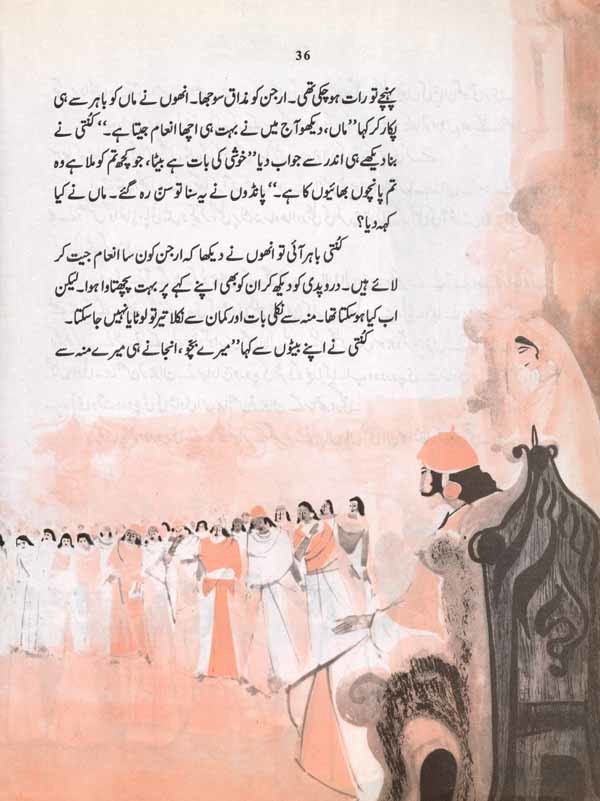 36
پہنچے تو رات ہو چکی تھی۔ ارجن کو مذاق سوجھا۔ انھوں نے ماں کو باہر سے ہی
پکار کر کہا ”ماں، دیکھو آج میں نے بہت ہی اچھا انعام جیتا ہے۔“ کُنتی نے
بنا دیکھے ہی اندر سے جواب دیا ”خوشی کی بات ہے بیٹا، جو کچھ تم کو ملا ہے وہ
تم پانچوں بھائیوں کا ہے۔“ پانڈوں نے یہ سنا تو سن رہ گئے۔ ماں نے کیا
کہہ دیا؟
کُنتی باہر آئی تو انھوں نے دیکھا کہ ارجن کون سا انعام جیت کر
لائے ہیں۔ دروپدی کو دیکھ کر ان کو بھی اپنے کہے پر بہت پچھتاوا ہوا۔ لیکن
اب کیا ہو سکتا تھا۔ منہ سے نکلی بات اور کمان سے نکلا تیر تو لوٹایا نہیں جا سکتا۔
کُنتی نے اپنے بیٹوں سے کہا ”میرے بچّو، انجانے ہی میرے منہ سے